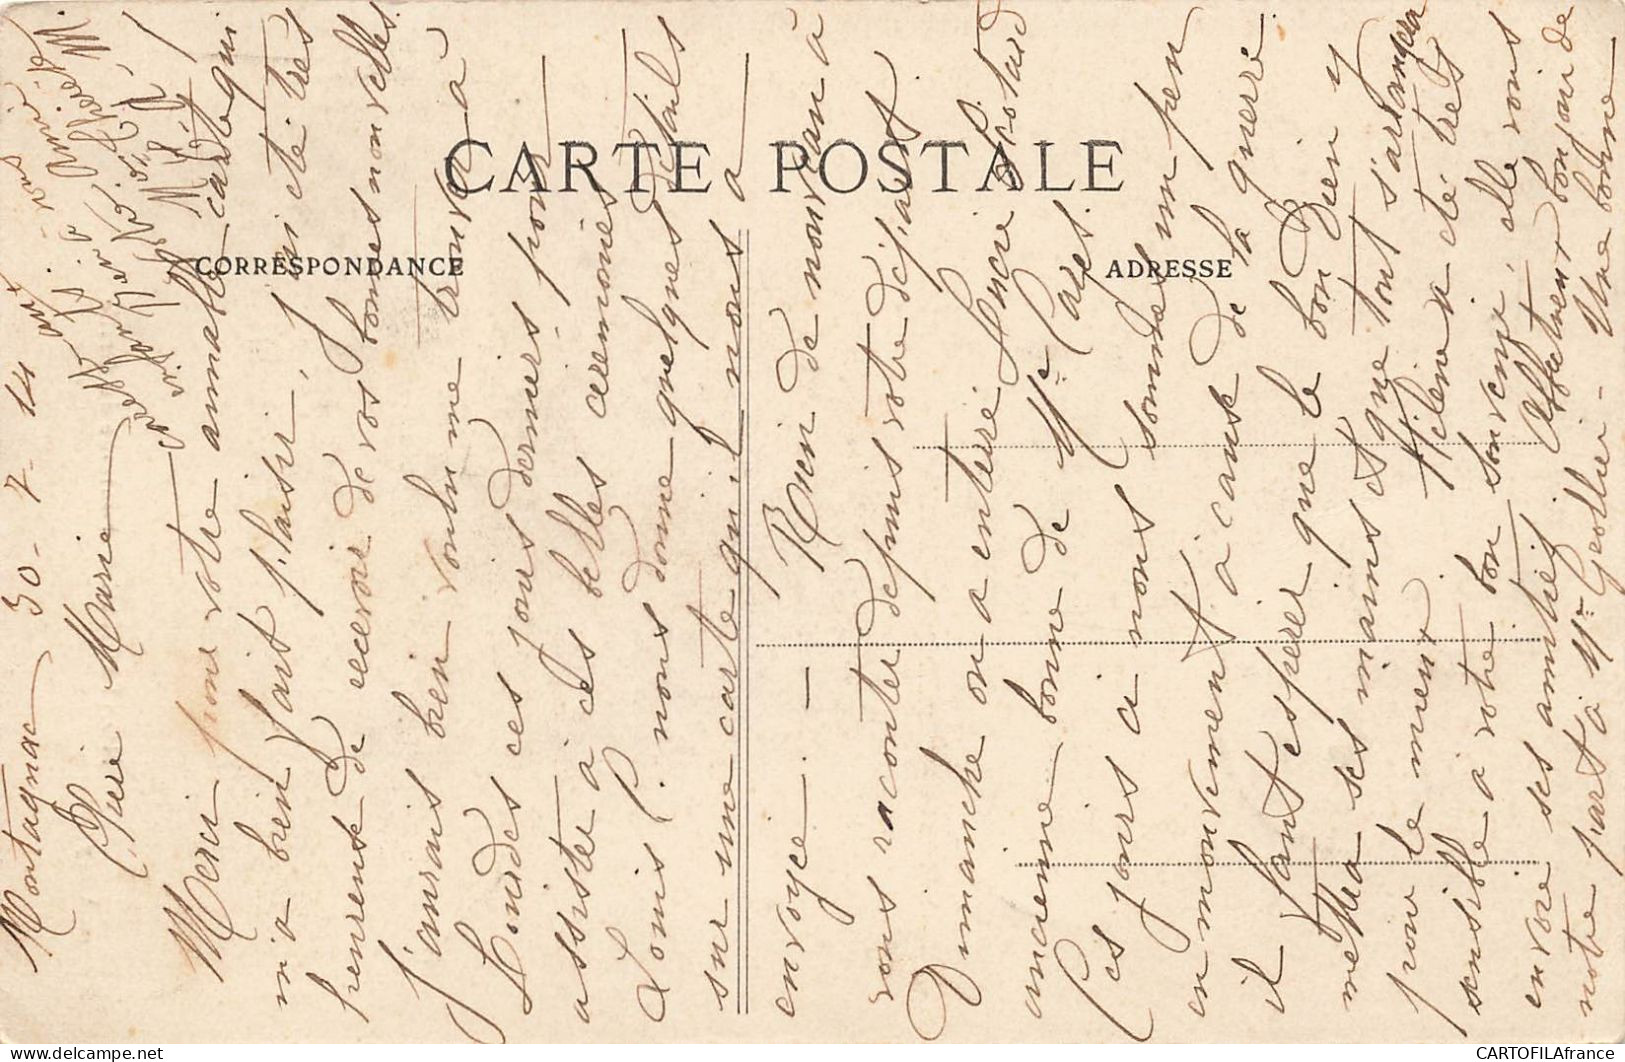 CARTE POSTALE
CORRESPONDANCE
ADRESSE
Montagnac 30-7-14
Chère Marie
Merci pour votre aimable carte qui
m'a bien fait plaisir, J'ai été très
heureuse de recevoir de vos bonnes nouvelles
J'aurais bien voulu me trouver à
Lourdes ces jours derniers pour
assister à ces belles cérémonies
Louis P. nous donne quelques détails
sur une carte qu'il nous a
envoyée. — Rien de nouveau à
vous raconter depuis votre départ
Dimanche on a enterré Lucie
ancienne bonne de Me Pagès
Ces jours ci nous sommes un peu
en mouvement à cause de la guerre
il faut espérer que le bon Dieu y
mettra ses mains et que tout s'arrangera
pour le mieux Hélène a été très
sensible à votre bon souvenir, elle vous
envoie ses amitiés Affectueux bonjour de
notre part à Mr Geollier. Une bonne
CARTOFILAfrance